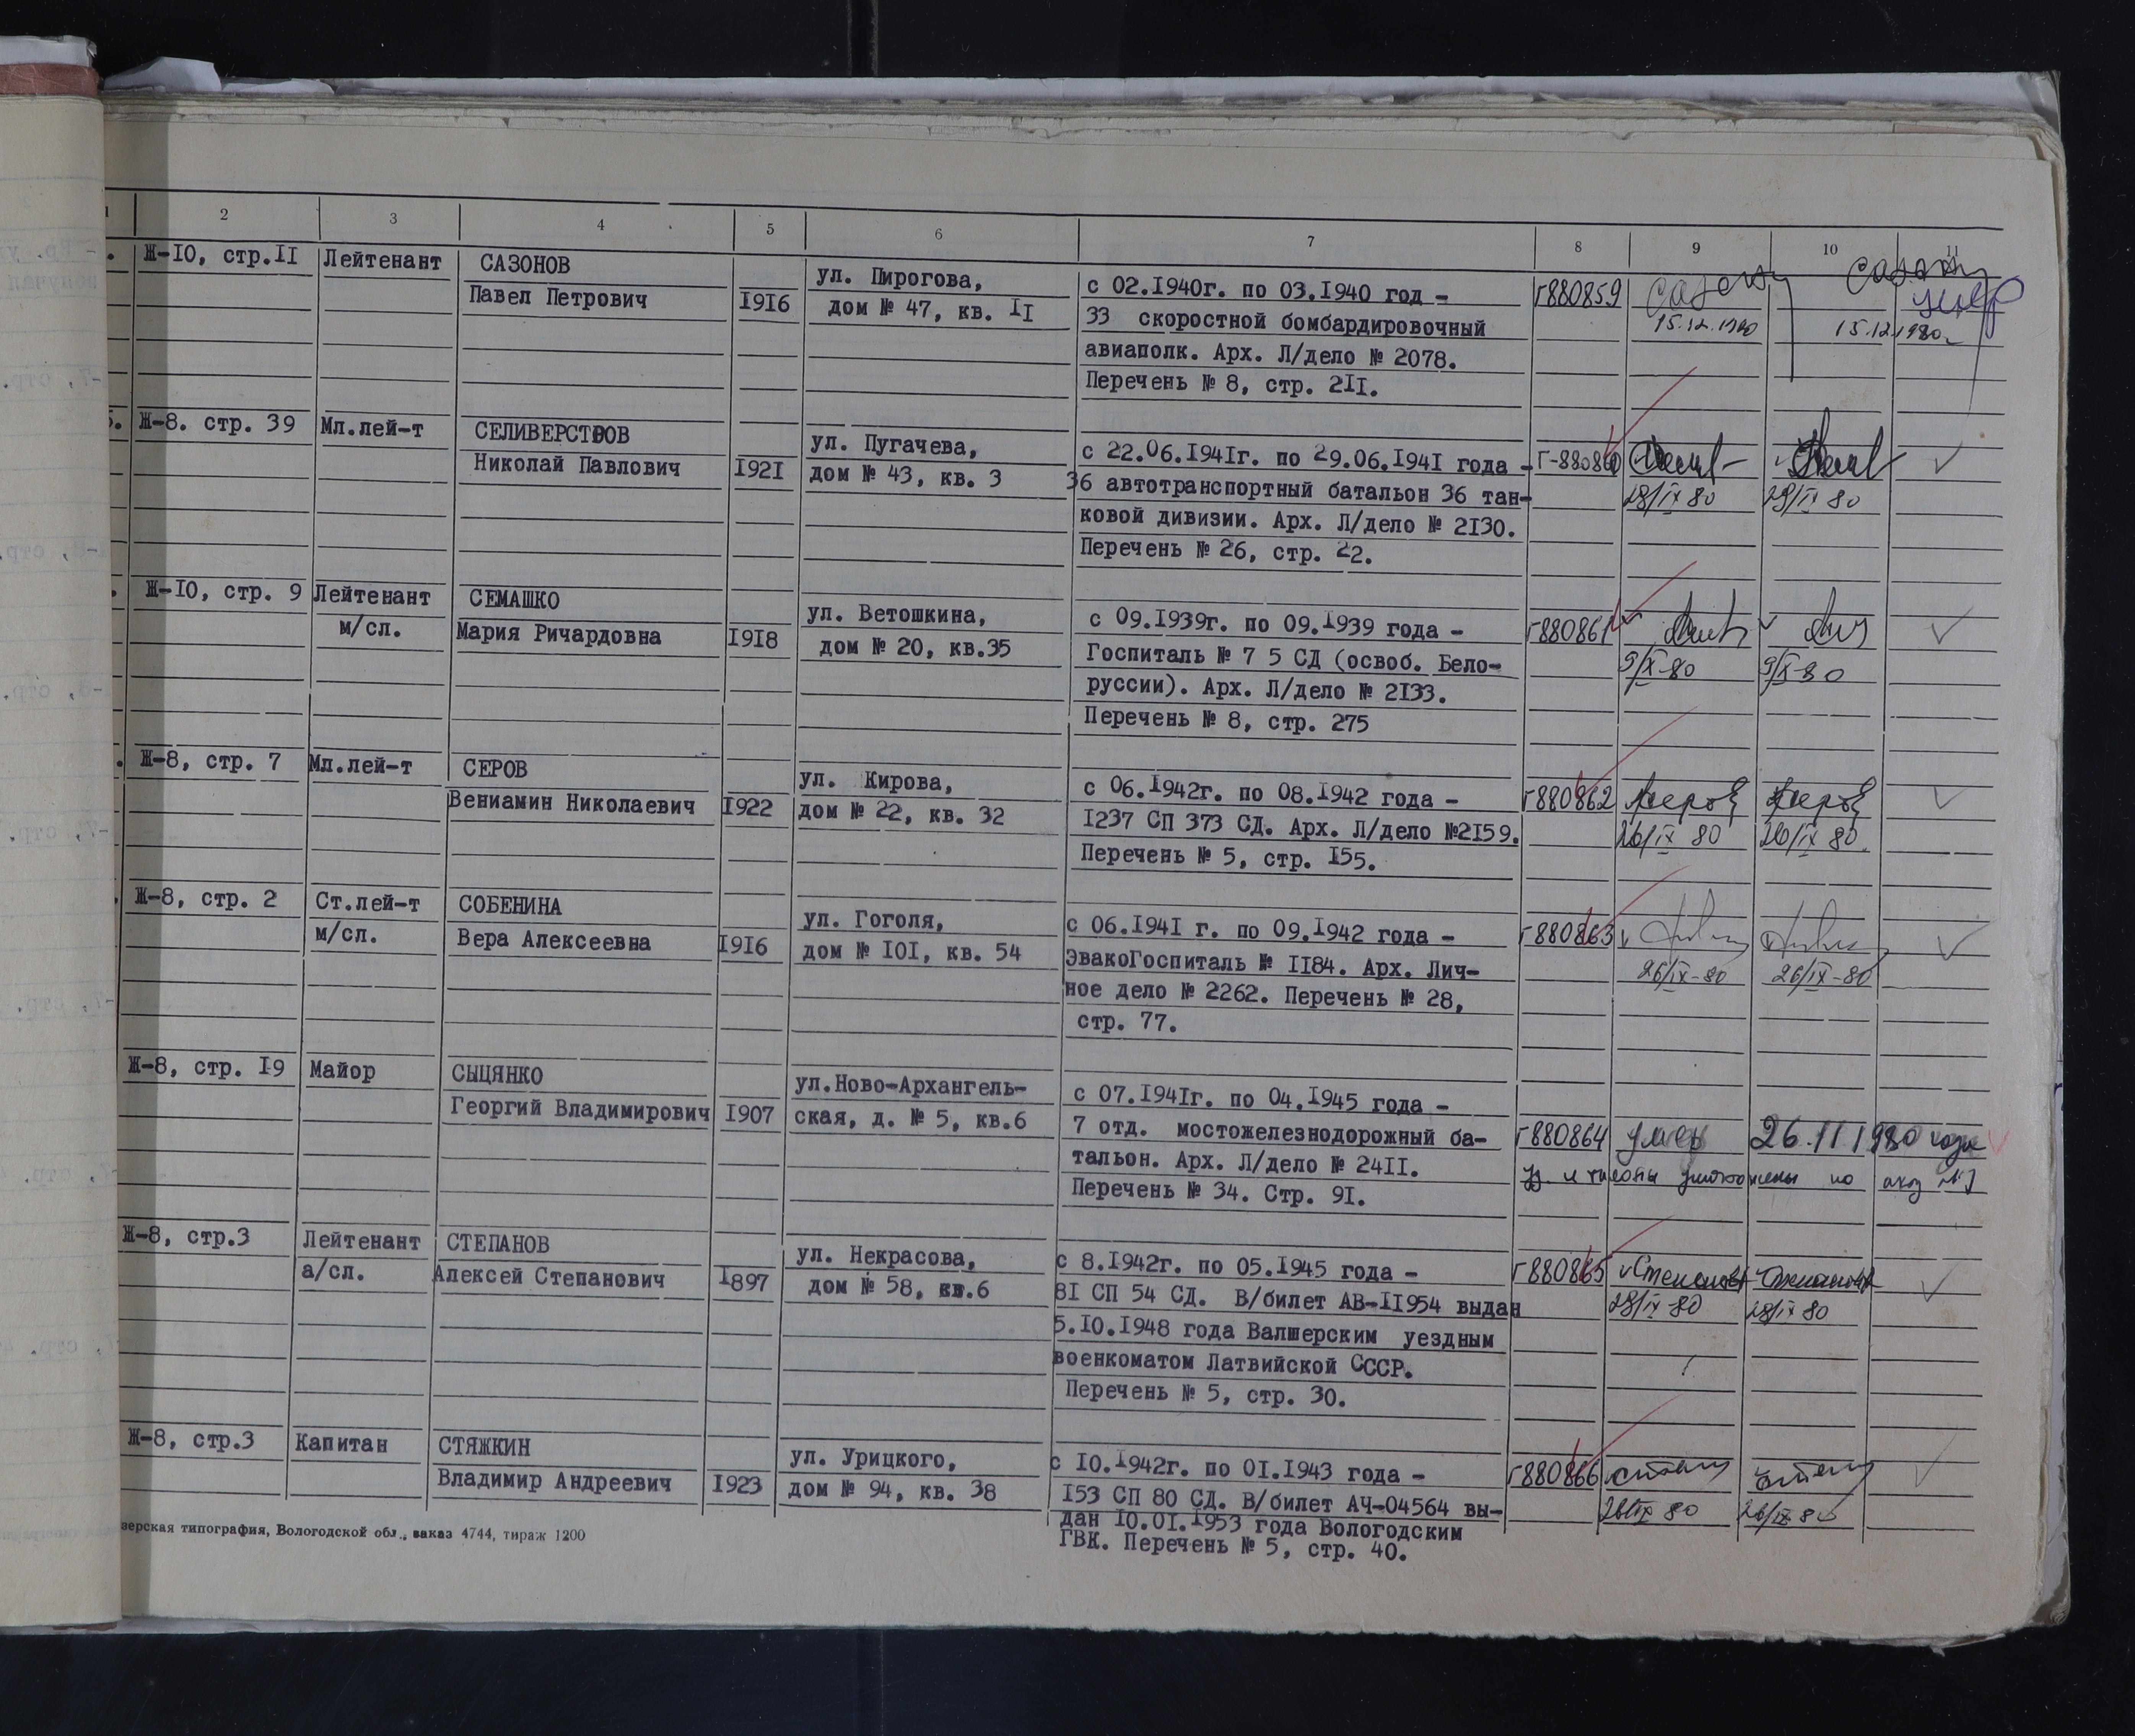 1 2 3 4 5 6 7 8 9 10 11
Ж-IO, стр.II Лейтенант САЗОНОВ
Павел Петрович I9I6
ул. Пирогова,
дом № 47, кв. II
с 02.I940г. по 03.I940 год -
33 скоростной бомбардировочный
авиаполк. Арх. Л/дело № 2078.
Перечень № 8, стр. 2II.
г880859
15.12.1980 15.12.1980
Ж-8. стр. 39 Мл.лей-т СЕЛИВЕРСТОВ
Николай Павлович I92I
ул. Пугачева,
дом № 43, кв. 3
с 22.06.I94Iг. по 29.06.I94I года -
36 автотранспортный батальон 36 тан-
ковой дивизии. Арх. Л/дело № 2I30.
Перечень № 26, стр. 22.
Г-880860
28/IX 80 29/IX 80
Ж-IO, стр. 9 Лейтенант СЕМАШКО
м/сл. Мария Ричардовна I9I8
ул. Ветошкина,
дом № 20, кв.35
с 09.I939г. по 09.I939 года -
Госпиталь № 7 5 СД (освоб. Бело-
руссии). Арх. Л/дело № 2I33.
Перечень № 8, стр. 275
г880861
9/X-80 9/X-80
Ж-8, стр. 7 Мл.лей-т СЕРОВ
Вениамин Николаевич I922
ул. Кирова,
дом № 22, кв. 32
с 06.I942г. по 08.I942 года -
I237 СП 373 СД. Арх. Л/дело №2I59.
Перечень № 5, стр. I55.
г880862 Серов Серов
26/IX 80 26/IX 80.
Ж-8, стр. 2 Ст.лей-т СОБЕНИНА
м/сл. Вера Алексеевна I9I6
ул. Гоголя,
дом № IOI, кв. 54
с 06.I94I г. по 09.I942 года -
ЭвакоГоспиталь № II84. Арх. Лич-
ное дело № 2262. Перечень № 28,
стр. 77.
г880863
26/IX-80 26/IX-80
Ж-8, стр. I9 Майор СЫЦЯНКО
Георгий Владимирович I907
ул.Ново-Архангель-
ская, д. № 5, кв.6
с 07.I94Iг. по 04.I945 года -
7 отд. мостожелезнодорожный ба-
тальон. Арх. Л/дело № 24II.
Перечень № 34. Стр. 9I.
г880864 умер 26.11 1980 года
и талоны уничтожены по акту №1
Ж-8, стр.3 Лейтенант СТЕПАНОВ
а/сл. Алексей Степанович I897
ул. Некрасова,
дом № 58, кв.6
с 8.I942г. по 05.I945 года -
8I СП 54 СД. В/билет АВ-II954 выдан
5.I0.I948 года Валшерским уездным
военкоматом Латвийской СССР.
Перечень № 5, стр. 30.
г880865 Степанов Степанов
28/IX 80 28/IX 80
Ж-8, стр.3 Капитан СТЯЖКИН
Владимир Андреевич I923
ул. Урицкого,
дом № 94, кв. 38
с IO.I942г. по OI.I943 года -
I53 СП 80 СД. В/билет АЧ-04564 вы-
дан IO.OI.I953 года Вологодским
ГВК. Перечень № 5, стр. 40.
г880866
26/IX 80 26/IX 80
зерская типография, Вологодской обл., заказ 4744, тираж 1200